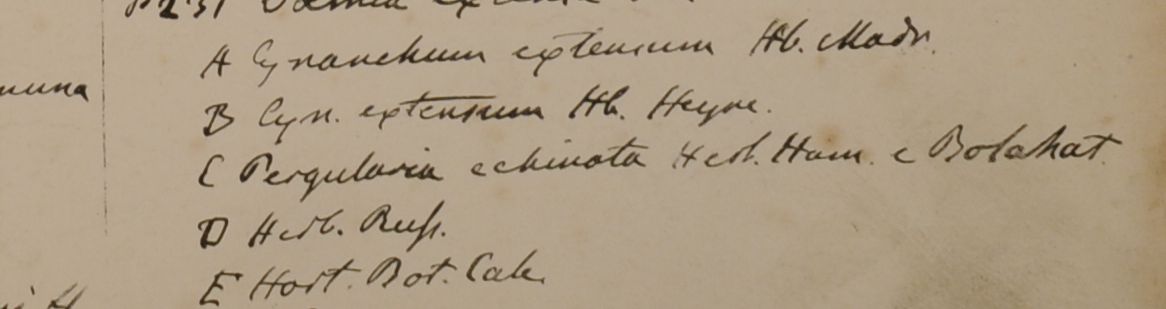 Daemia extensa
A Cynanchum extensum Hb. Madr.
B Cyn. extensum Hb. Heyne.
C Pergularia echinata Herb. Ham. e Bolahat
D Herb. Russ.
E Hort. Bot. Calc.